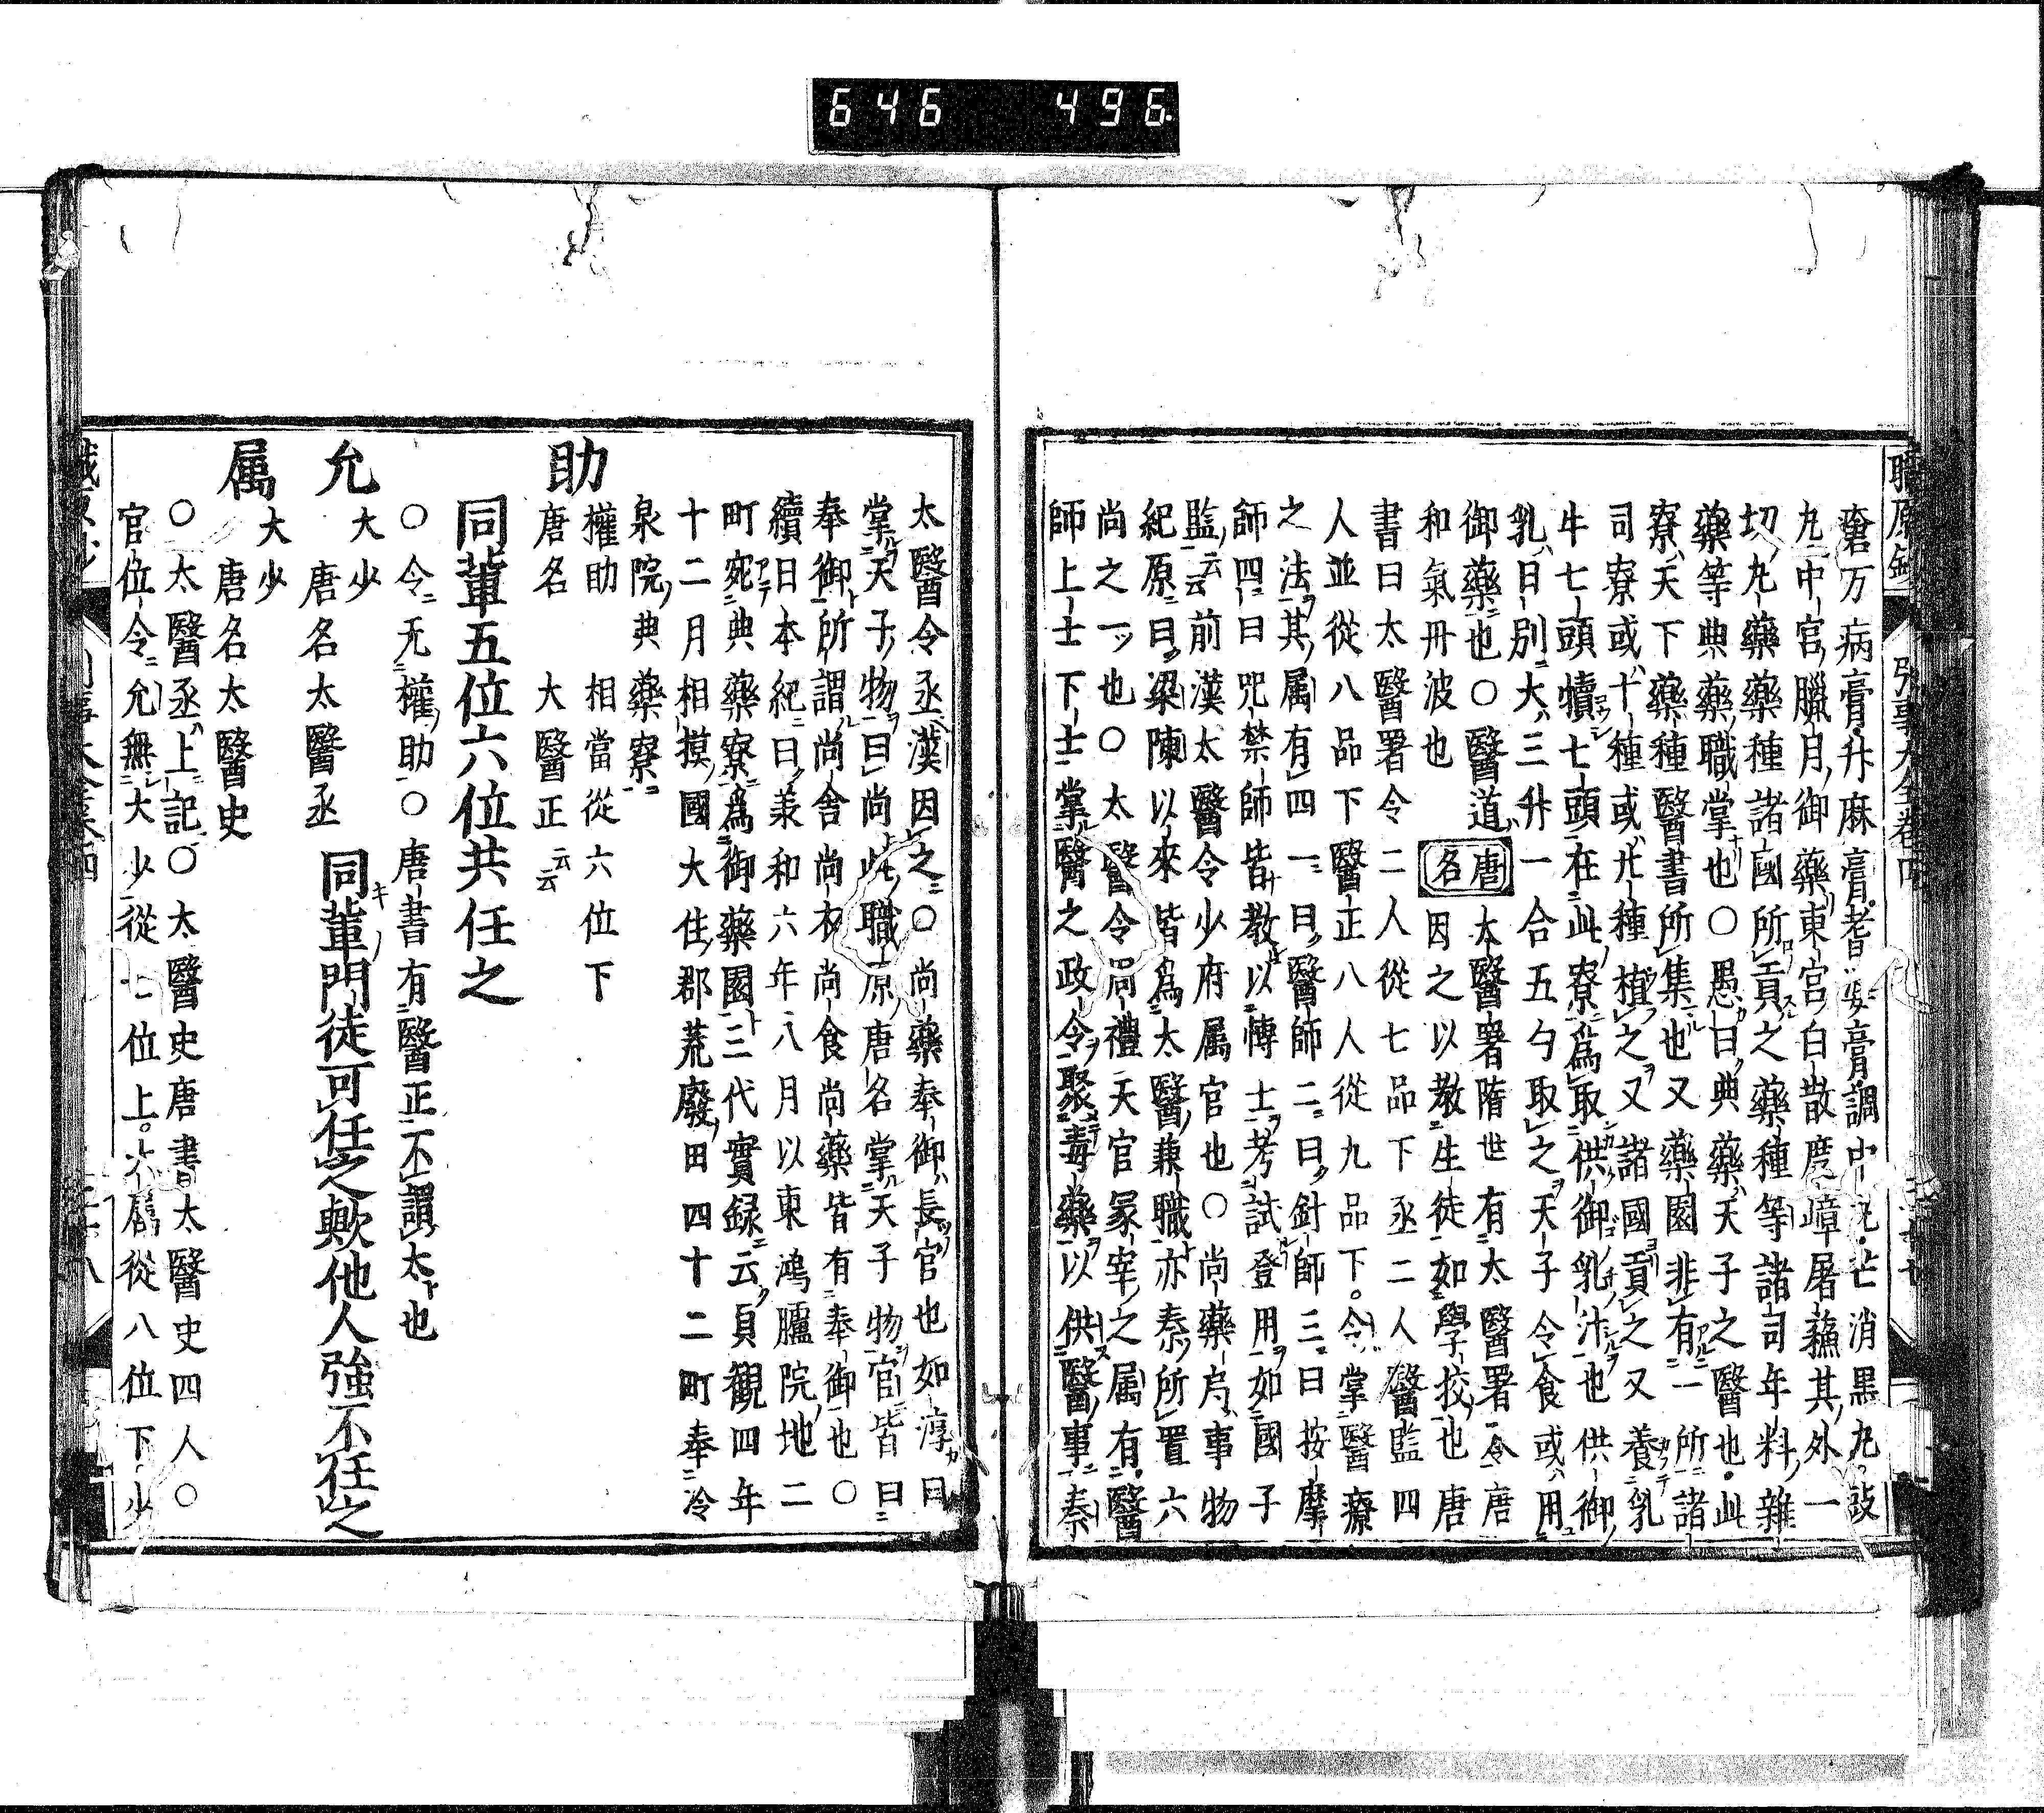 646 496
瘡万病膏升麻膏耆婆膏調中光芒消黒九豉
九中官臘月御藥東宮白散度嶂屠蘓其外一
切九藥藥種諸國所貢之藥種等諸司年料雜
藥等典藥職掌也○愚曰典藥天子之醫也此
寮天下藥種醫書所集也又藥園非有一所諸
司寮或十種或廿種植之又諸國貢之又養乳
牛七頭犢七頭在此寮爲取供御乳汁也供御
乳日別大三升一合五勺取之天子令食或用
御藥也○醫道唐名太醫署隋世有太醫署令唐
和氣丹波也因之以教生徒如學校也唐
書曰太醫署令二人從七品下丞二人醫監四
人並從八品下醫正八人從九品下令掌醫療
之法其属有四一曰醫師二曰針師三曰按摩
師四曰咒禁師皆教以博士考試登用如國子
監云云前漢太醫令少府属官也○尚藥局事物
紀原曰梁陳以來皆爲太醫兼職亦秦所置六
尚之一也○太醫令周禮天官冢宰之属有醫
師上士下士掌醫之政令聚毒藥以供醫事秦
太醫令丞漢因之○尚藥奉御長官也如淳曰
掌天子物曰尚此職原唐名掌天子物官皆曰
奉御所謂尚舍尚衣尚食尚藥皆有奉御也○
續日本紀曰羕和六年八月以東鴻臚院地二
町宛典藥寮爲御藥園三代實録云貞觀四年
十二月相摸國大住郡荒廢田四十二町奉冷
泉院典藥寮
助
權助 相當從六位下
唐名 大醫正云云
同輩五位六位共任之
○令无權助○唐書有醫正不謂太也
允
大少
唐名太醫丞 同輩門徒可任之歟他人強不任之
属
大少
唐名太醫史
○太醫丞上記○太醫史唐書太醫史四人○
官位令允無大少從七位上大属從八位下少